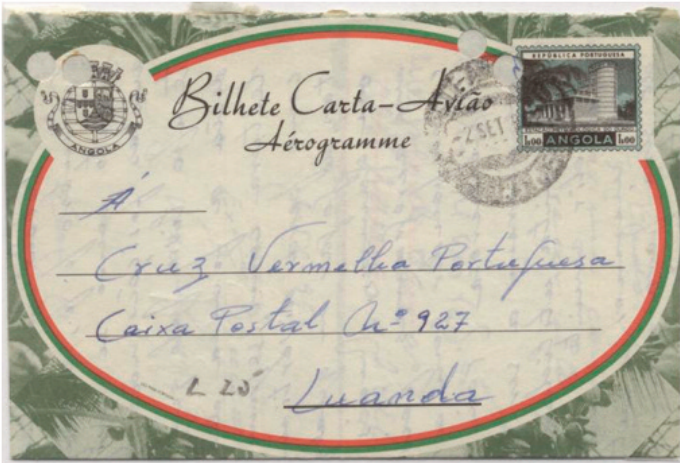 Bilhete Carta-Avião
Aérogramme
ANGOLA
REPÚBLICA PORTUGUESA
1$00 ANGOLA 1$00
2 SET
Á
Cruz Vermelha Portuguesa
Caixa Postal Nº 927
Luanda